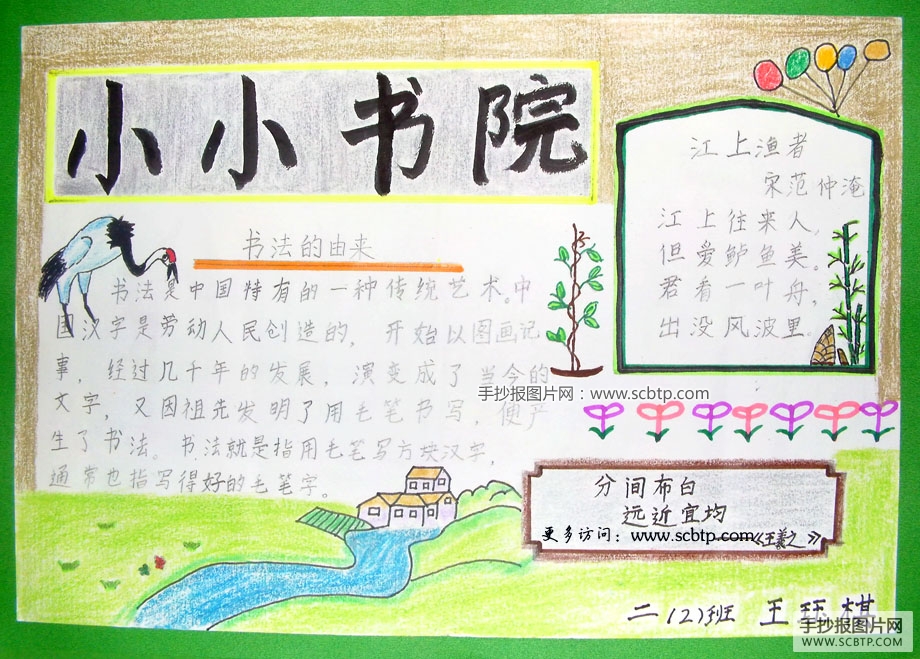 小小书院
书法的由来
书法是中国特有的一种传统艺术。中
国汉字是劳动人民创造的，开始以图画记
事，经过几千年的发展，演变成了当今的
文字，又因祖先发明了用毛笔书写，便产
生了书法。书法就是指用毛笔写方块汉字，
通常也指写得好的毛笔字。
江上渔者
宋范仲淹
江上往来人，
但爱鲈鱼美。
君看一叶舟，
出没风波里。
手抄报图片网：www.scbtp.com
分间布白
远近宜均
更多访问：www.scbtp.com
《王羲之》
二（2）班 王 棋
手抄报图片网
WWW.SCBTP.COM